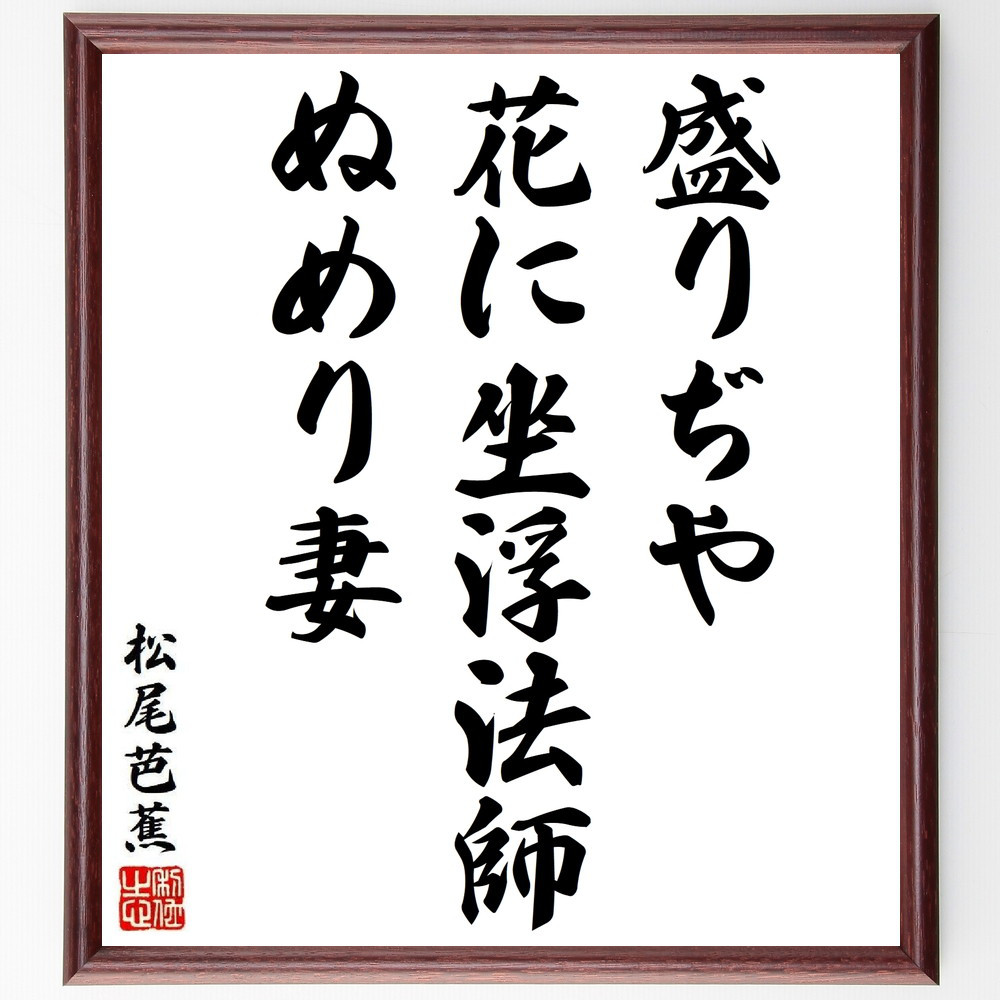 盛りぢや
花に坐浮法師
ぬめり妻
松尾芭蕉